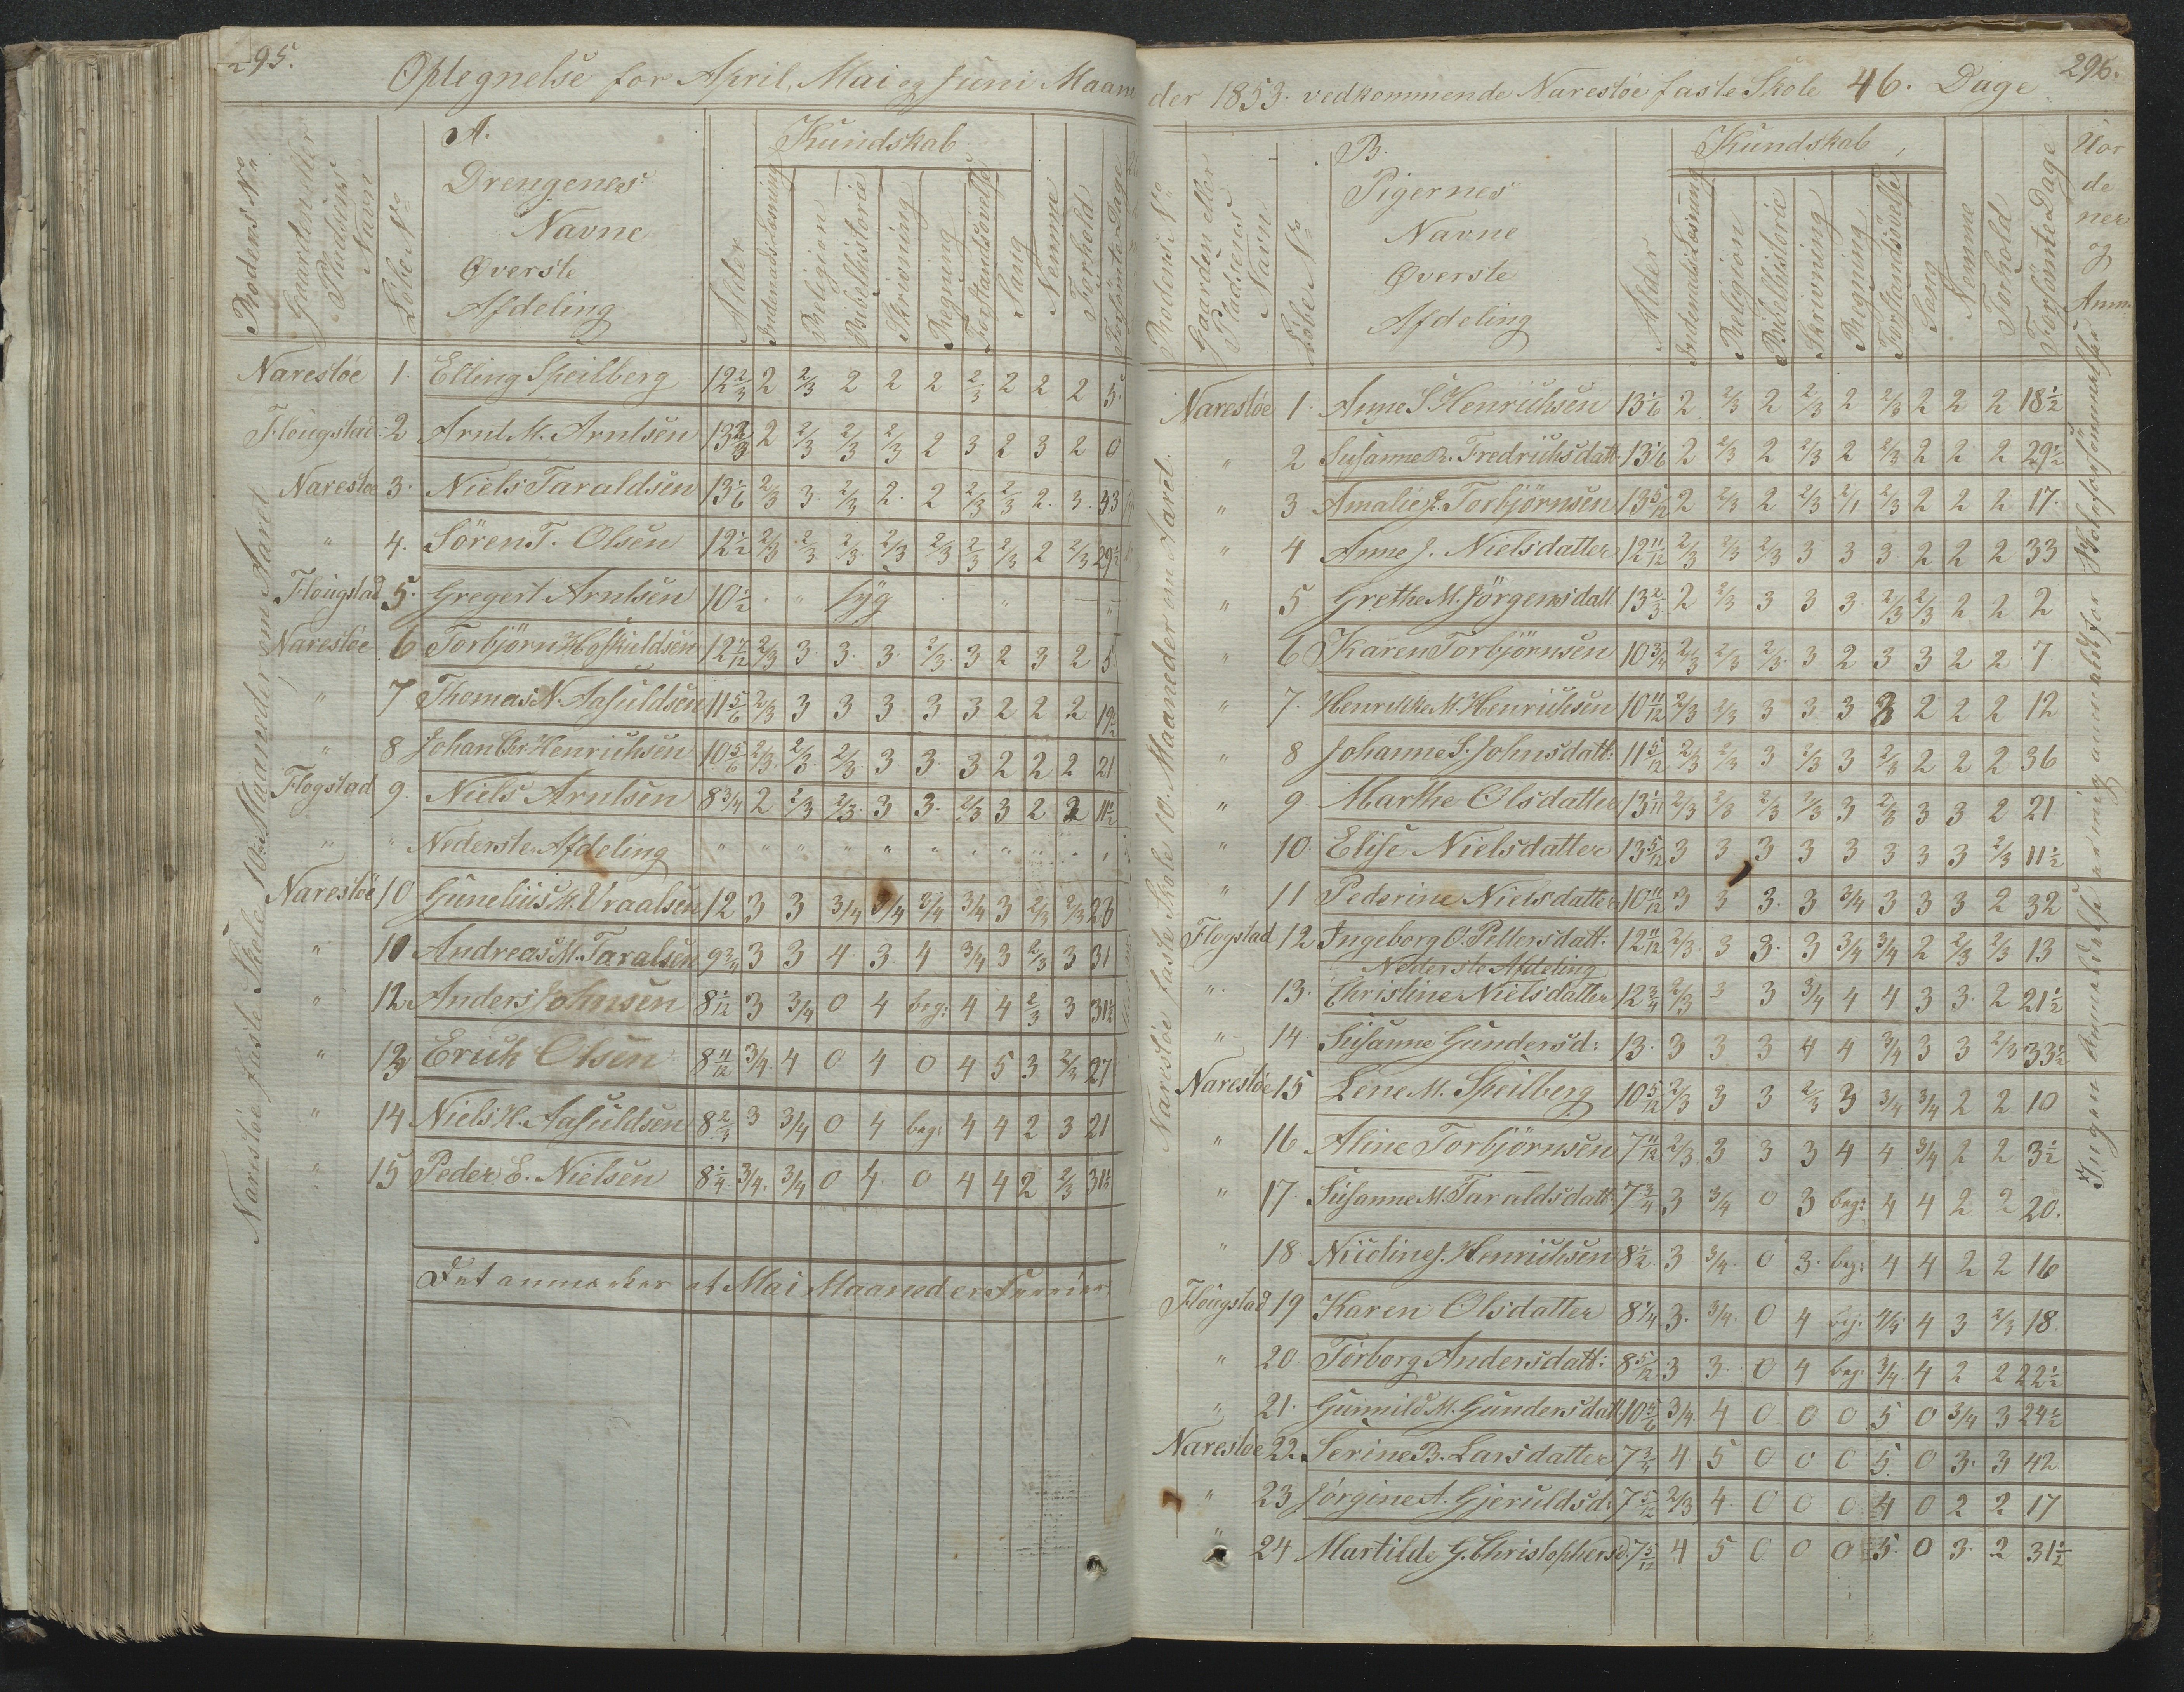 295.
Optegnelse for April, Mai og Juni Maam
Rodens No
Gaarden eller Pladsens Navn
Løbe No
A.
Drengenes
Navne
Øverste
Afdeling
Alder
Kundskab
Indenads Læsning
Religion
Bibelhistorie
Skrivning
Regning
Forstandsövelse
Sang
Nemme
Forhold
Forsömte Dage
Narestöe faste Skole 10. Maaneder om Aaret
Narestöe 1. Elling Speilberg 12 2/3 2 2/3 2 2 2 2/3 2 2 2 5.
Flougstad 2 Arnt M. Arntsen 13 2/3 2 2/3 2/3 2/3 2 3 2 3 2 0
Narestöe 3. Niels Taraldsen 13 1/6 2/3 3. 2/3 2. 2 2/3 2/3 2. 3. 43
" 4. Sören T. Olsen 12 1/2 2/3 2/3 2/3 2/3 2/3 2/3 2/3 2 2/3 29 1/2
Flougstad 5. Gregert Arntsen 10 1/2 " syg " "
Narestöe 6 Torbjörn Hofkuldsen 12 7/12 2/3 3. 3. 3. 2/3 3 2 3 2 5.
" 7 Thomas N. Aasuldsen 11 5/6 2/3 3 3 3 3 3 2 2 2 19 1/2
" 8 Johan Chr. Henrichsen 10 5/6 2/3 2/3 2/3 3. 3. 3 2 2 2 21
Flogstad 9. Niels Arntsen 8 3/4 2 2/3 2/3 3 3. 2/3 3 2 2 11 1/2
" " Nederste Afdeling " " " " " " " "
Narestöe 10 Gunelius K. Vraalsen 12 3 3 3/4 3/4 3/4 3/4 3 2/3 2/3 26
" 11 Andreas M. Taralsen 9 3/4 3 3 4 3. 4 3/4 3 2/3 3 31
" 12 Anders Johnsen 8 1/12 3 3/4 0 4 beg: 4 4 2/3 3 31 1/2
" 13 Erich Olsen 8 11/12 3/4 4 0 4 0 4 5 3 2/3 27
" 14 Niels K. Aasuldsen 8 2/3 3 3/4 0 4 beg: 4 4 2 3 21
" 15 Peder E. Nielsen 8 1/4 3/4 3/4 0 4. 0 4 4 2 2/3 31 1/2
Det anmærkes at Mai Maaned er Ferrier
296.
der 1853. vedkommende Narestöe faste Skole 46. Dage
Rodens No
Gaarden eller Pladsens Navn
Löbe No
B.
Pigernes
Navne
Øverste
Afdeling
Alder
Kundskab
Indenads Læsning
Religion
Bibelhistorie
Skrivning
Regning
Forstandsövelse
Sang
Nemme
Forhold
Forsömte Dage
Uor
de
ner
og
Anm.
Narestöe faste Skole 10. Maaneder om Aaret.
Narestöe 1. Anne S Henrichsen 13 1/6 2 2/3 2 2/3 2 2/3 2 2 2 18 1/2
" 2 Susanne B. Fredrichsdatt 13 1/6 2 2/3 2 2/3 2 2/3 2 2 2 29 1/2
" 3 Amalie J. Torbjörnsen 13 5/12 2 2/3 2 2/3 2/1 2/3 2 2 2 17.
" 4 Anne J. Nielsdatter 12 11/12 2/3 2/3 2/3 3 3 3 2 2 2 33
" 5 Grethe M. Jörgensdatt 13 2/3 2 2/3 3 3 3 2/3 2/3 2 2 2
" 6 Karen Torbjörnsen 10 3/4 2/3 2/3 2/3 3 2 3 3 2 2 7
" 7. Henrikke M. Henrichsen 10 11/12 2/3 2/3 3 3 3 3 2 2 2 12
" 8 Johanne S. Johnsdatt: 11 5/12 2/3 2/3 3 2/3 3 2/3 2 2 2 36
" 9 Marthe Olsdatter 13 1/11 2/3 2/3 2/3 2/3 3 2/3 3 3 2 21
" 10. Elise Nielsdatter 13 5/12 3 3 3 3 3 3 3 3 2/3 11 1/2
" 11 Pederine Nielsdatter 10 11/12 3 3 3. 3 3/4 3 3 3 2 32
Flogstad 12 Ingeborg O. Pettersdatt. 12 11/12 2/3 3 3. 3 3/4 3/4 2 2/3 2/3 13
Nederste Afdeling
" 13. Christine Nielsdatter 12 3/4 2/3 3 3 3/4 4 4 3 3. 2 21 1/2
" 14. Susanne Gundersd: 13. 3 3 3 4 4 3/4 3 3 2/3 33 1/2
Narestöe 15 Lene M. Speilberg 10 5/12 2/3 3 3 2/3 3 3/4 3/4 2 2 10
" 16 Aline Torbjörnsen 7 11/12 2/3 3 3 3 4 4 3/4 2 2 3 1/2
" 17. Susanne M. Taraldsdatt 7 3/4 3 3/4 0 3 beg: 4 4 2 2 20.
" 18 Nicoline J. Henrichsen 8 1/2 3 3/4 0 3. beg: 4 4 2 2 16
Flougstad 19 Karen Olsdatter 8 1/4 3. 3/4 0 4 beg. 4/5 4 3 2/3 18
" 20. Torborg Andersdatt: 8 5/12 3 3. 0 4 beg. 3/4 4 2 2 22 1/2
" 21. Gunnild M. Gundersdatt 10 5/6 3/4 4 0 0 0 5 0 3/4 3 24 1/2
Narestöe 22 Serine B. Larsdatter 7 3/4 4 5 0 0 0 5. 0 3. 3 42
" 23 Jörgine A. Gjeruldsd: 7 5/12 2/3 4 0 0 0 4 0 2 2 17
" 24 Martilde G. Christophersd. 7 5/12 4 5 0 0 0 5. 0 3. 2 31 1/2
Ingen Anmeldelse er mig anmeldt for Skoleforsömmelse